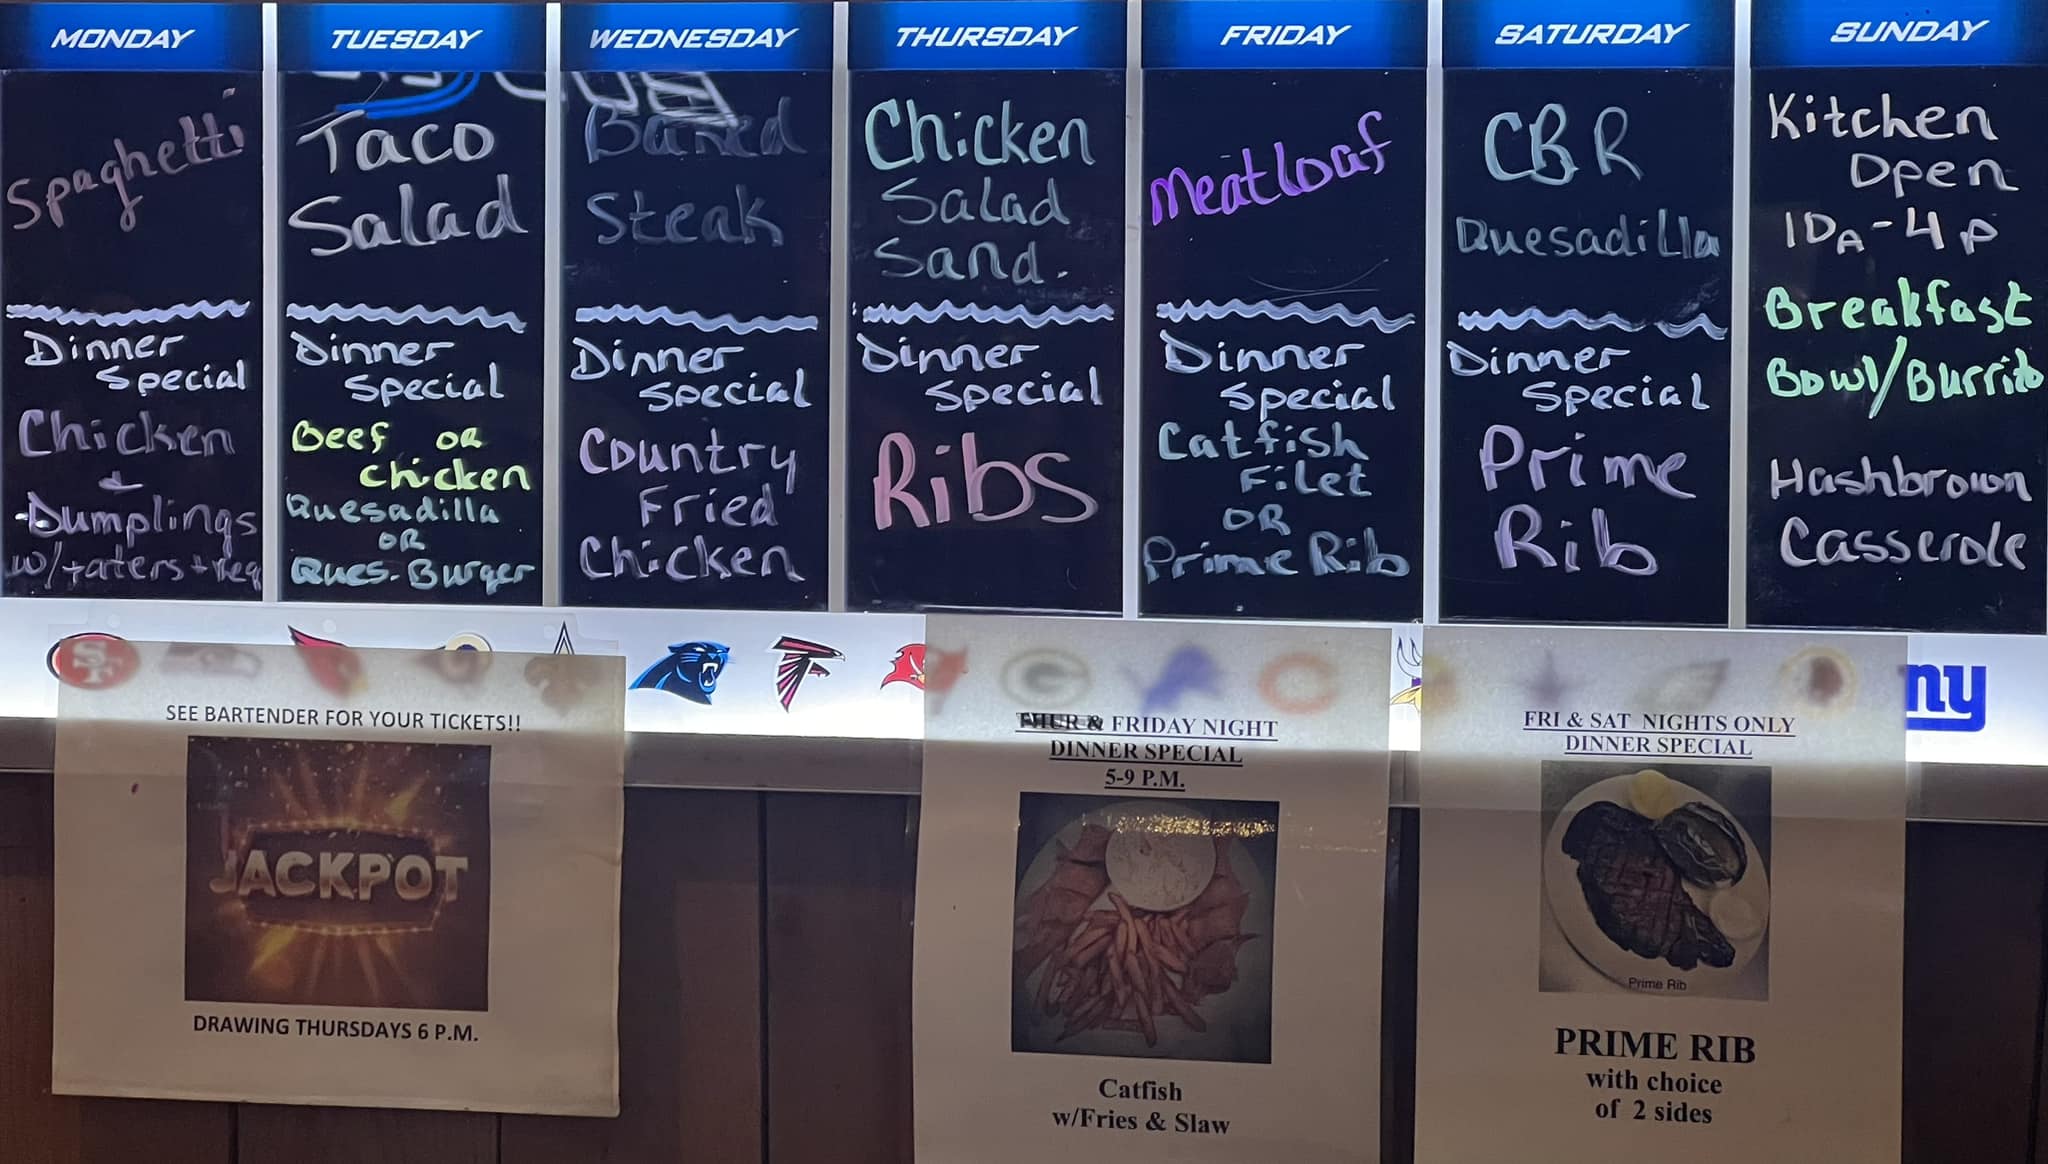 MONDAY
Spaghetti
Dinner
Special
Chicken
&
Dumplings
w/taters+veg
TUESDAY
Taco
Salad
Dinner
Special
Beef OR
Chicken
Quesadilla
OR
Ques. Burger
WEDNESDAY
Steak
Dinner
Special
Country
Fried
Chicken
THURSDAY
Chicken
Salad
Sand.
Dinner
Special
Ribs
FRIDAY
Meatloaf
Dinner
Special
Catfish
Filet
OR
Prime Rib
SATURDAY
CBR
Quesadilla
Dinner
Special
Prime
Rib
SUNDAY
Kitchen
Open
10A-4P
Breakfast
Bowl/Burrito
Hashbrown
Casserole
SF
G
C
ny
SEE BARTENDER FOR YOUR TICKETS!!
JACKPOT
DRAWING THURSDAYS 6 P.M.
THUR & FRIDAY NIGHT
DINNER SPECIAL
5-9 P.M.
Catfish
w/Fries & Slaw
FRI & SAT NIGHTS ONLY
DINNER SPECIAL
Prime Rib
PRIME RIB
with choice
of 2 sides